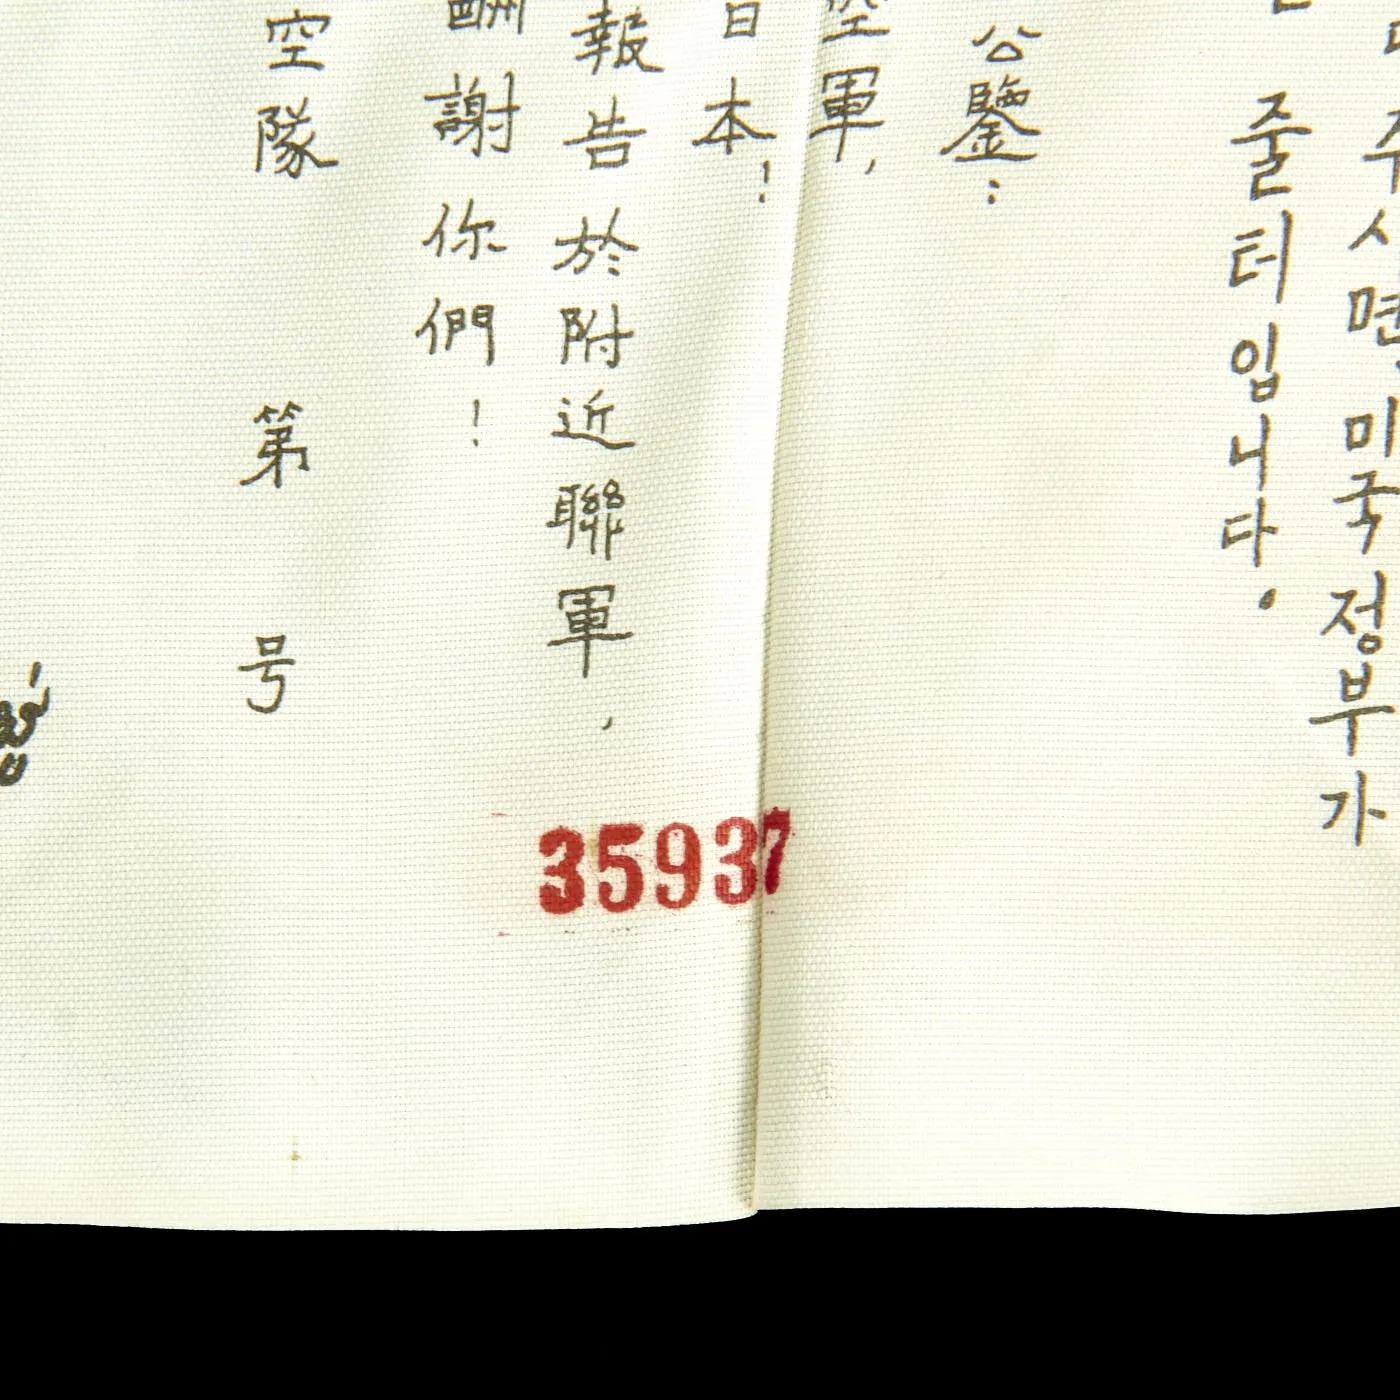 주시면 미국 정부가
줄 터 입니다.
公鑒:
空軍,
日本!
報告於附近聯軍,
酬謝你們!
空隊 第 号
35937